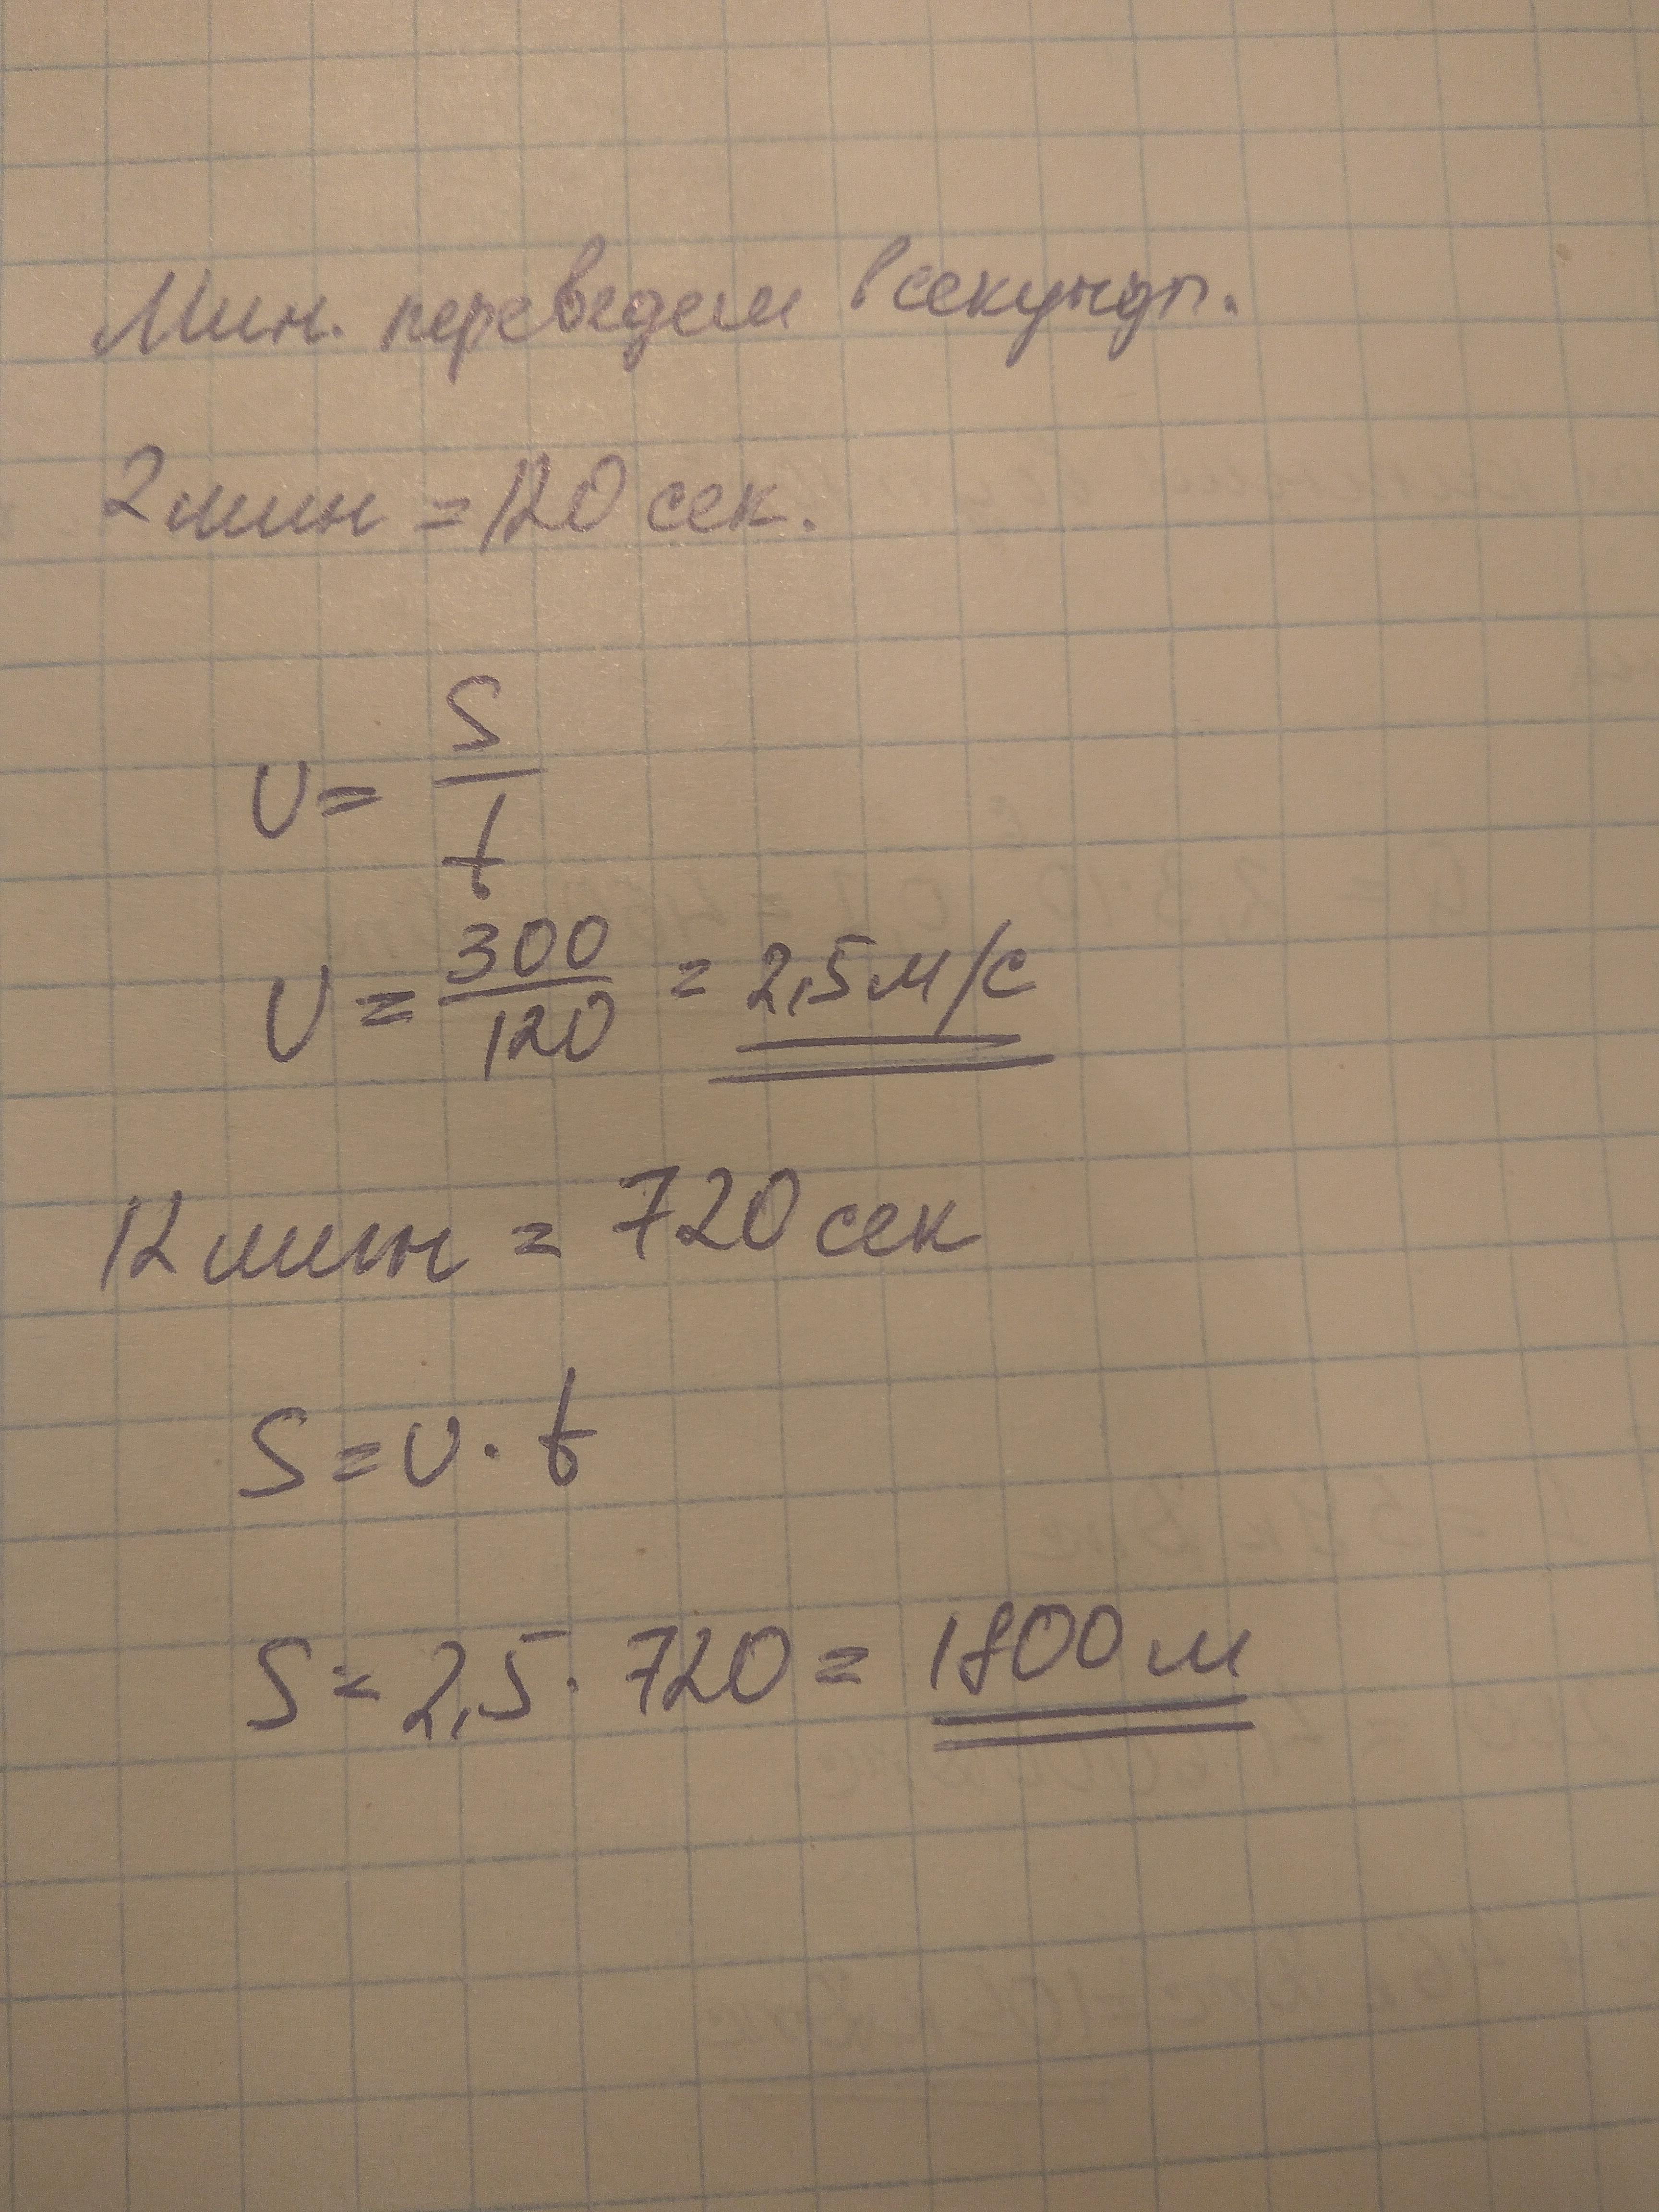 Мин. переведем в секунды.
2 мин = 120 сек.
υ = S/t
υ = 300/120 = 2,5 м/с
12 мин = 720 сек
S = υ · t
S = 2,5 · 720 = 1800 м